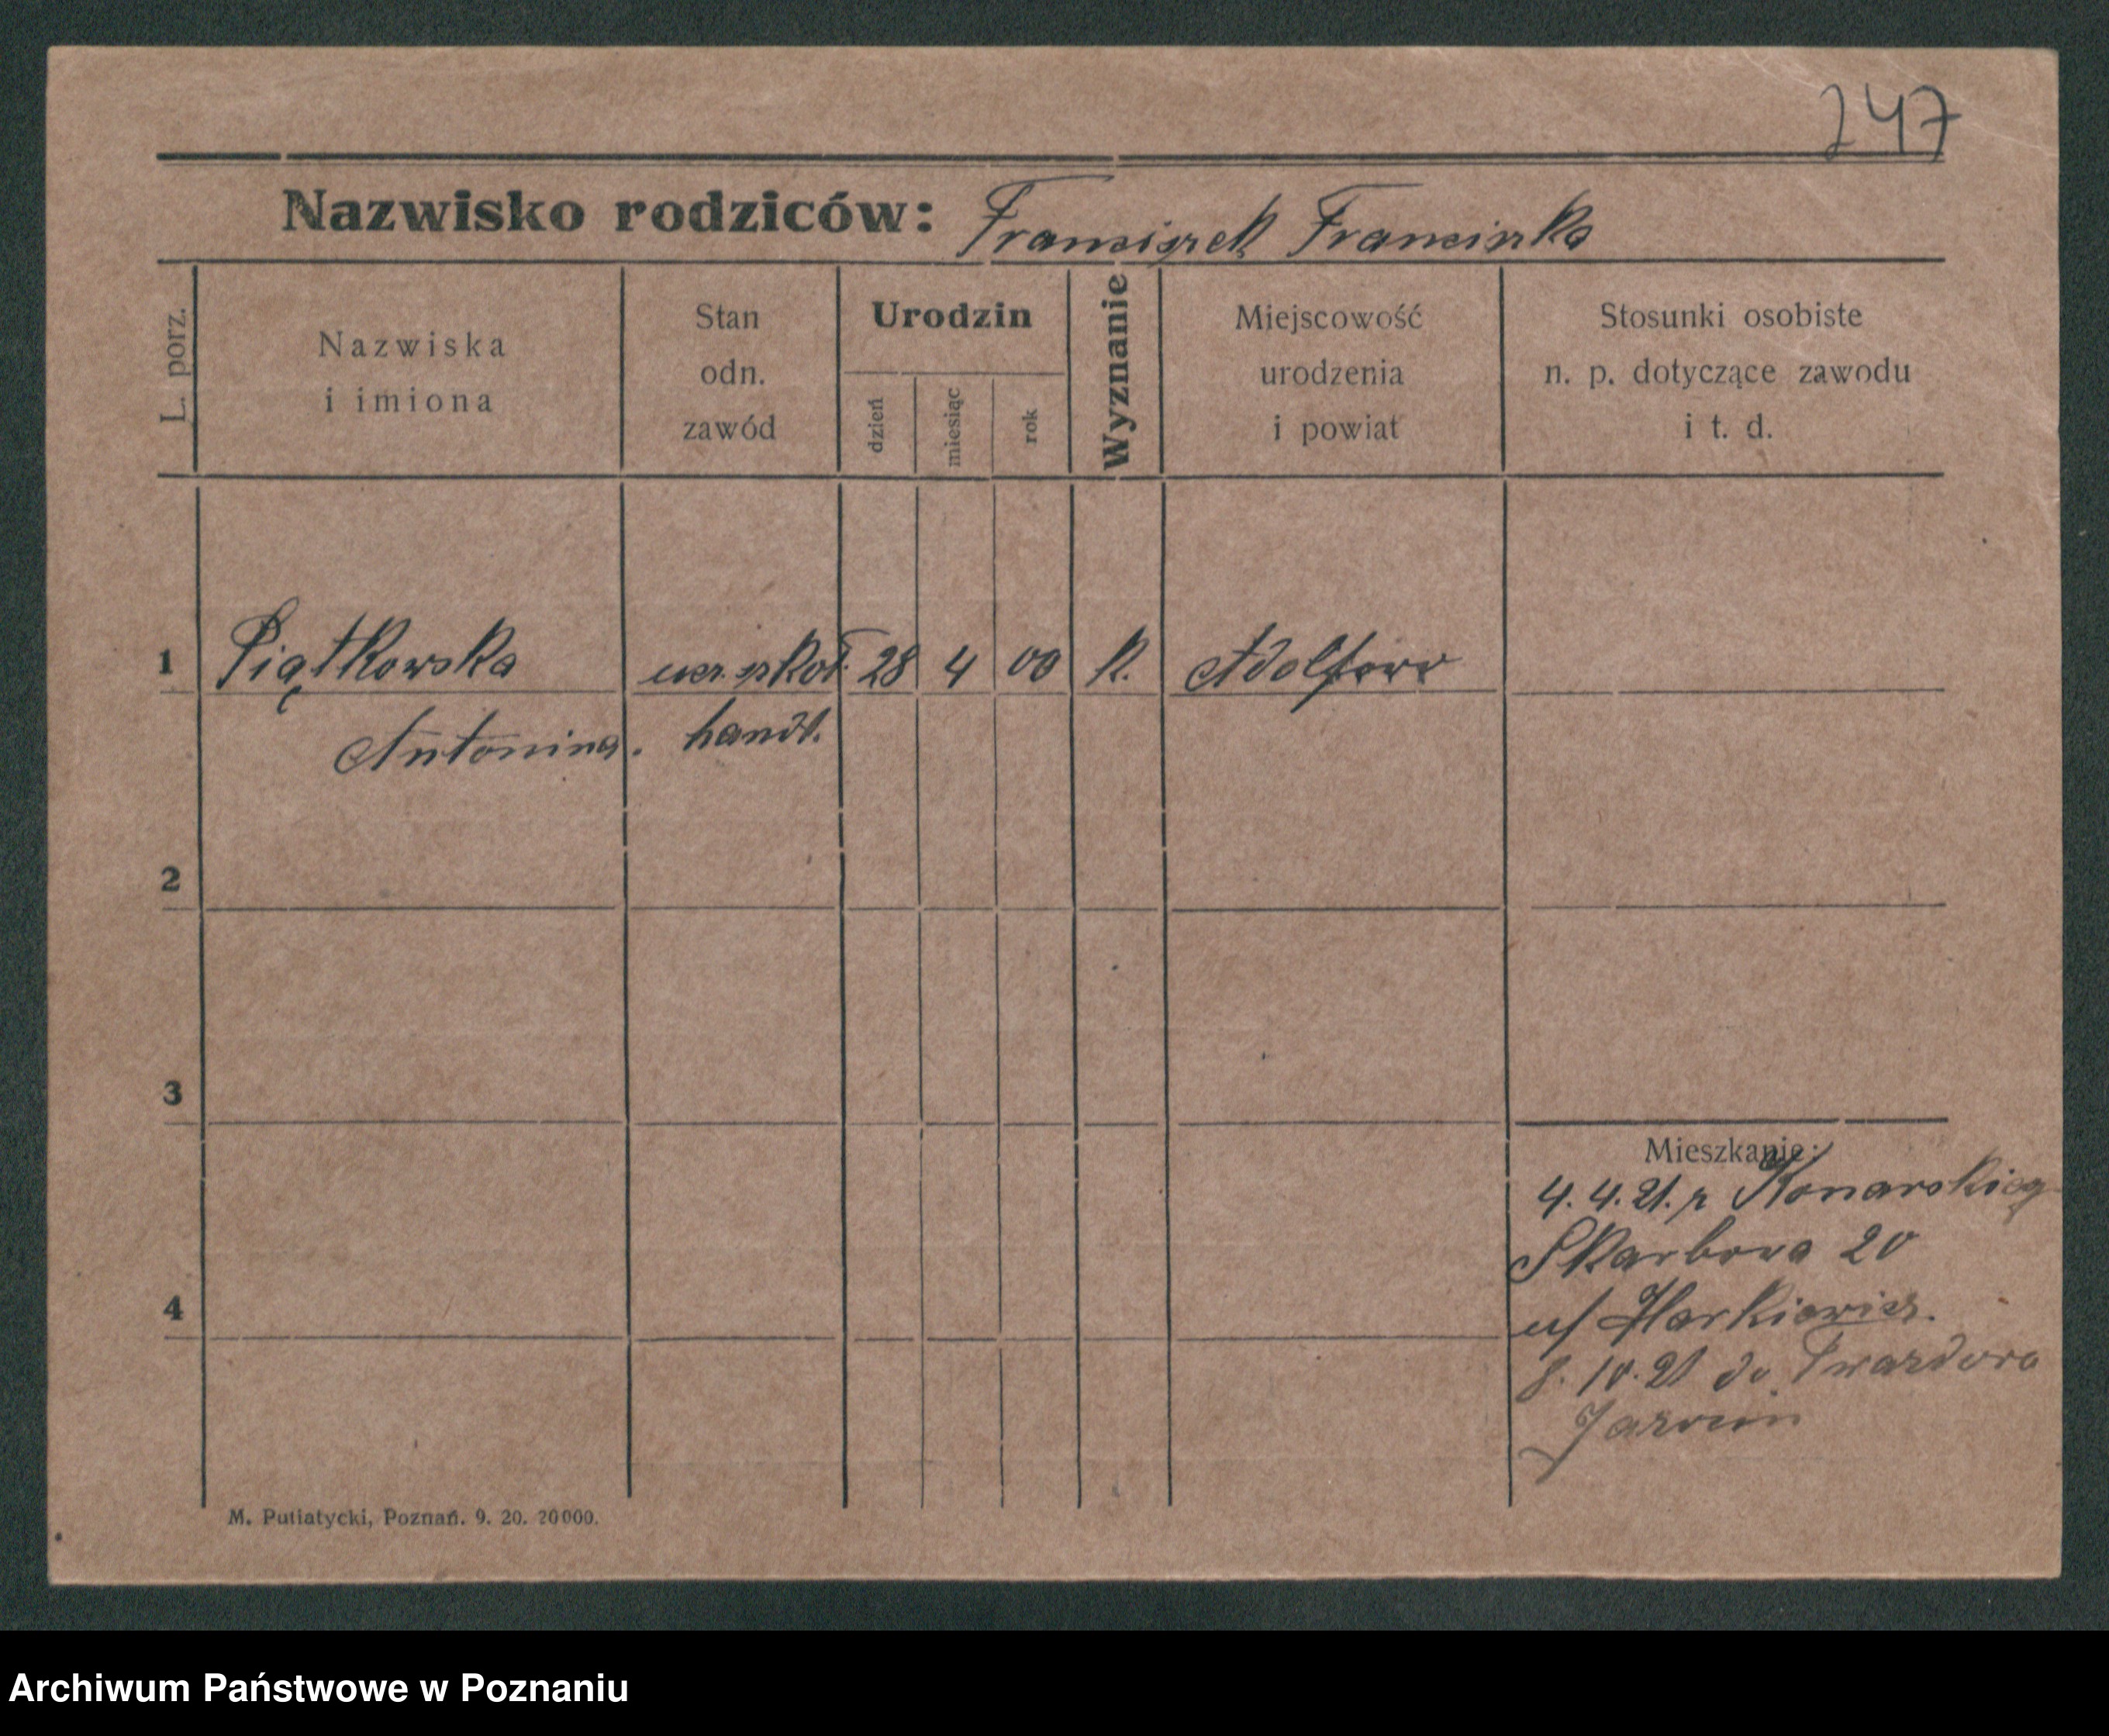 247
Nazwisko rodziców: Franciszek Franciszka
L. porz.
Nazwiska
i imiona
Stan
odn.
zawód
Urodzin
dzień
miesiąc
rok
Wyznanie
Miejscowość
urodzenia
i powiat
Stosunki osobiste
n. p. dotyczące zawodu
i t. d.
1 Piątkowska ucz. szkoł. 28 4 00 k. Adolfowo
Antonina. handl.
2
3
Mieszkanie:
4. 4. 21. z Konarskieg
Skarbowa 20
u/
4
8. 10. 21 do Twardowa
Jarocin
M. Putiatycki, Poznań. 9. 20. 20000.
Archiwum Państwowe w Poznaniu